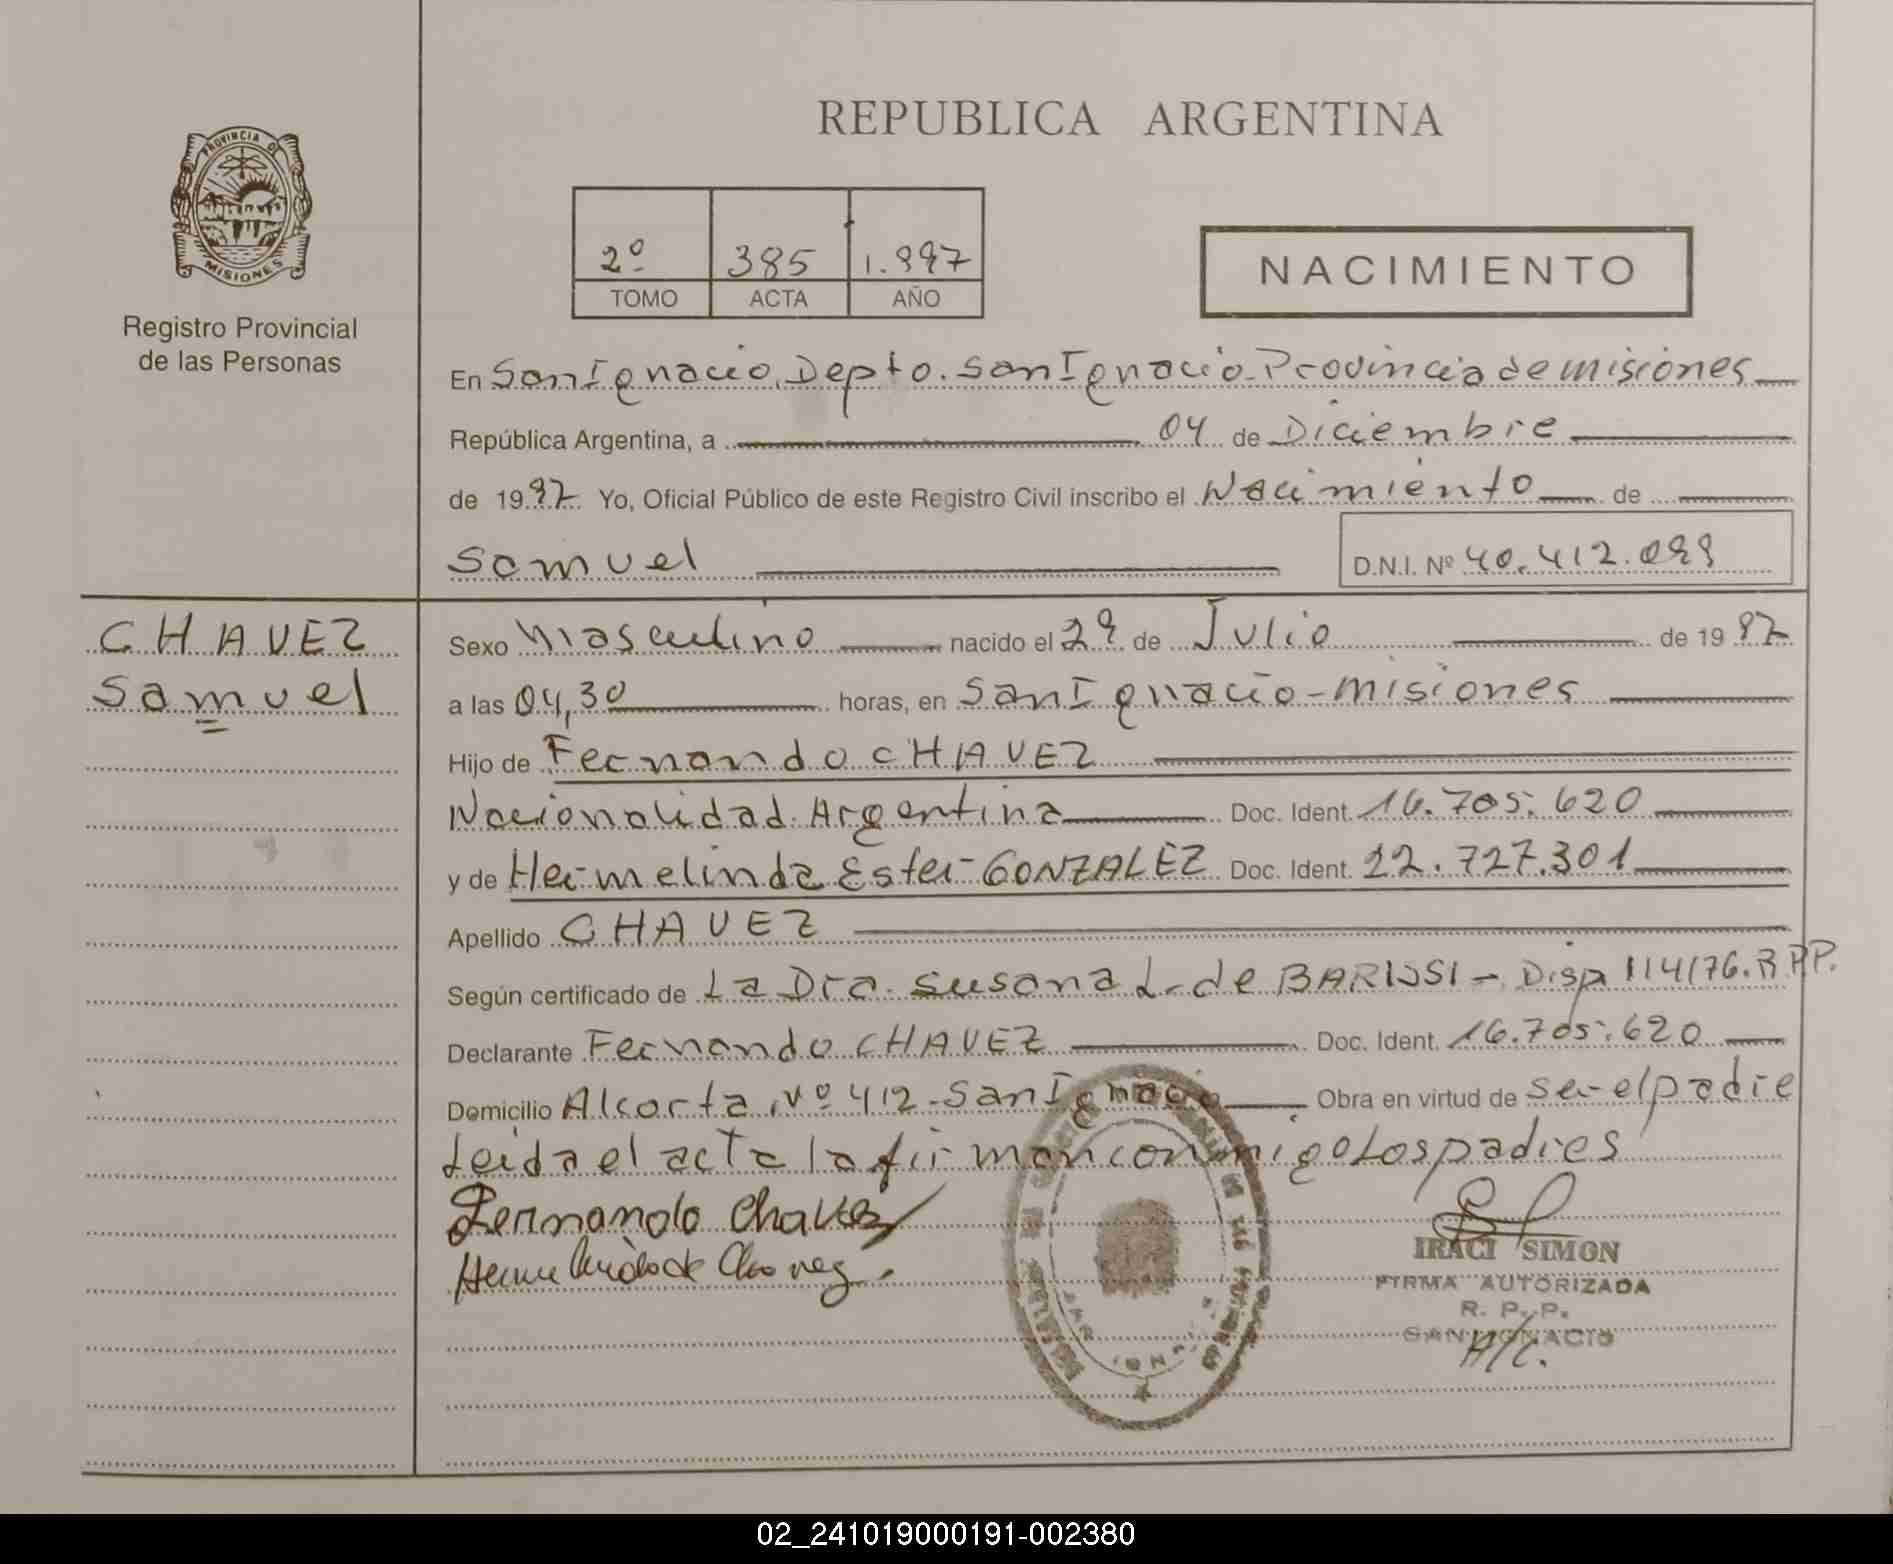 PROVINCIA DE
MISIONES
Registro Provincial
de las Personas
REPUBLICA ARGENTINA
2º 385 1.997
TOMO ACTA AÑO
NACIMIENTO
En San Ignacio, Depto. San Ignacio. Provincia de misiones
República Argentina, a 04 de Diciembre
de 1997. Yo, Oficial Público de este Registro Civil inscribo el Nacimiento de
Samuel
D.N.I. Nº 40.412.099
CHAVEZ
Samuel
Sexo Masculino nacido el 29 de Julio de 1997
a las 04,30 horas, en San Ignacio - misiones
Hijo de Fernando CHAVEZ
Nacionalidad Argentina Doc. Ident. 16.705.620
y de Hermelinda Ester GONZALEZ Doc. Ident. 22.727.301
Apellido CHAVEZ
Según certificado de La Dra. Susana L. de - Disp 114/76. R.P.P.
Declarante Fernando CHAVEZ Doc. Ident. 16.705.620
Domicilio Alcorta Nº 412 - San Ignacio Obra en virtud de ser el padre
Leida el acta la firman conmigo Los padres
Fernando Chavez
de Chavez.
IRACI SIMON
FIRMA AUTORIZADA
R. P. P.
SAN IGNACIO
A/C.
02_241019000191-002380